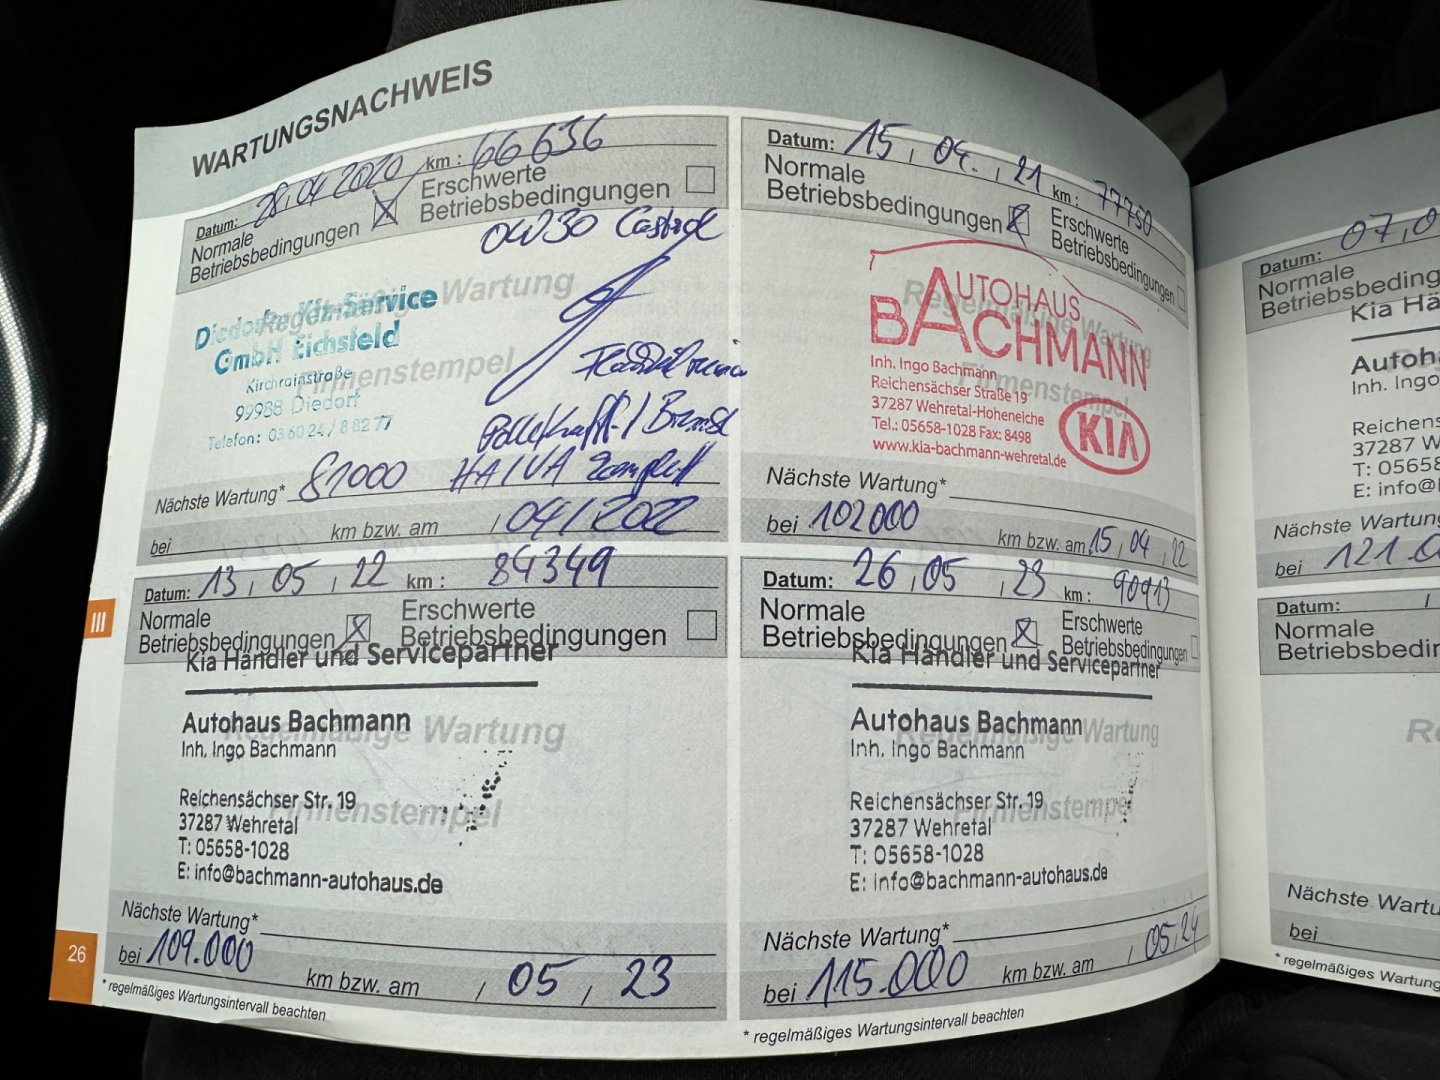 WARTUNGSNACHWEIS
Datum: 28.04 2020 km: 66636
Normale
Betriebsbedingungen
Erschwerte
Betriebsbedingungen
0W30 Castrol
Regelmäßige Wartung
Firmenstempel
Diedorfer Kfz-Service
GmbH Eichsfeld
Kirchrainstraße
99988 Diedorf
Telefon: 036024/88277
HA/VA
Nächste Wartung* 81000
bei km bzw. am / 04 / 2022
Datum: 15, 04. , 21 km: 77750
Normale
Betriebsbedingungen
Erschwerte
Betriebsbedingungen
Regelmäßige Wartung
Firmenstempel
AUTOHAUS
BACHMANN
Inh. Ingo Bachmann
Reichensächser Straße 19
37287 Wehretal-Hoheneiche
Tel.: 05658-1028 Fax: 8498
www.kia-bachmann-wehretal.de
KIA
Nächste Wartung*
bei 102000 km bzw. am 15, 04, 22
Datum: 13, 05, 22 km: 84349
Normale
Betriebsbedingungen
Erschwerte
Betriebsbedingungen
Kia Händler und Servicepartner
Autohaus Bachmann
Inh. Ingo Bachmann
Regelmäßige Wartung
Firmenstempel
Reichensächser Str. 19
37287 Wehretal
T: 05658-1028
E: info@bachmann-autohaus.de
Nächste Wartung*
bei 109.000 km bzw. am / 05, 23
* regelmäßiges Wartungsintervall beachten
Datum: 26, 05, 23 km: 90913
Normale
Betriebsbedingungen
Erschwerte
Betriebsbedingungen
Kia Händler und Servicepartner
Autohaus Bachmann
Inh. Ingo Bachmann
Regelmäßige Wartung
Firmenstempel
Reichensächser Str. 19
37287 Wehretal
T: 05658-1028
E: info@bachmann-autohaus.de
Nächste Wartung*
bei 115.000 km bzw. am / 05, 24
* regelmäßiges Wartungsintervall beachten
III
26
Datum: 07, 0
Normale
Betriebsbeding
Kia Hä
Autoha
Inh. Ingo
Reichens
37287 W
T: 05658
E: info@
Nächste Wartung
bei 121.0
Datum: /
Normale
Betriebsbedin
Re
Nächste Wartu
bei
* regelmäßiges Wartung